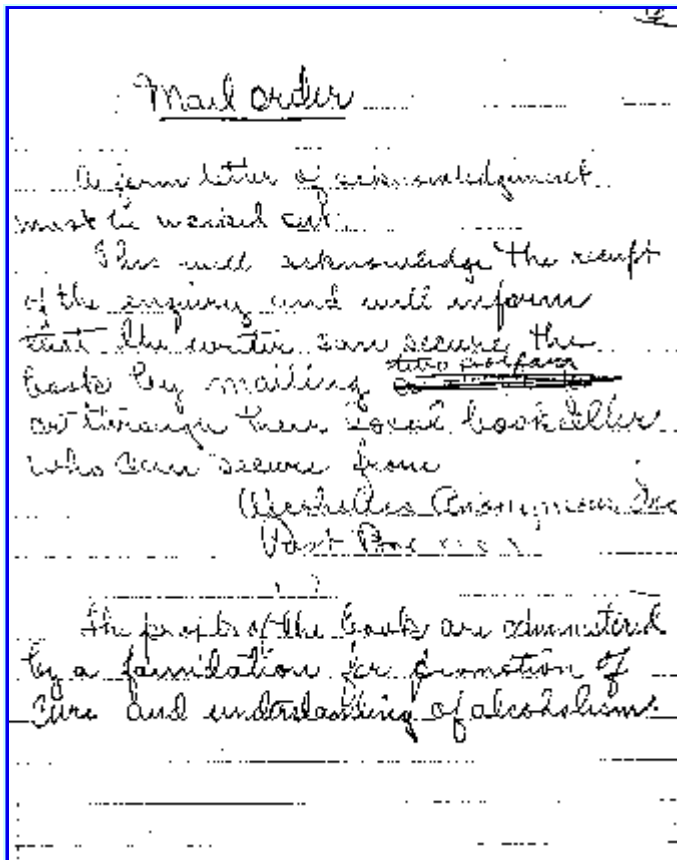 Mail order
A form letter of acknowledgement
must be worked out.
This will acknowledge the receipt
of the enquiry and will inform
that the writer can secure the
book by mailing
or through their local bookseller
who can secure from
Alcoholics Anonymous Inc
Post Box
The profits of the book are administered
by a foundation for promotion of
cure and understanding of alcoholism.